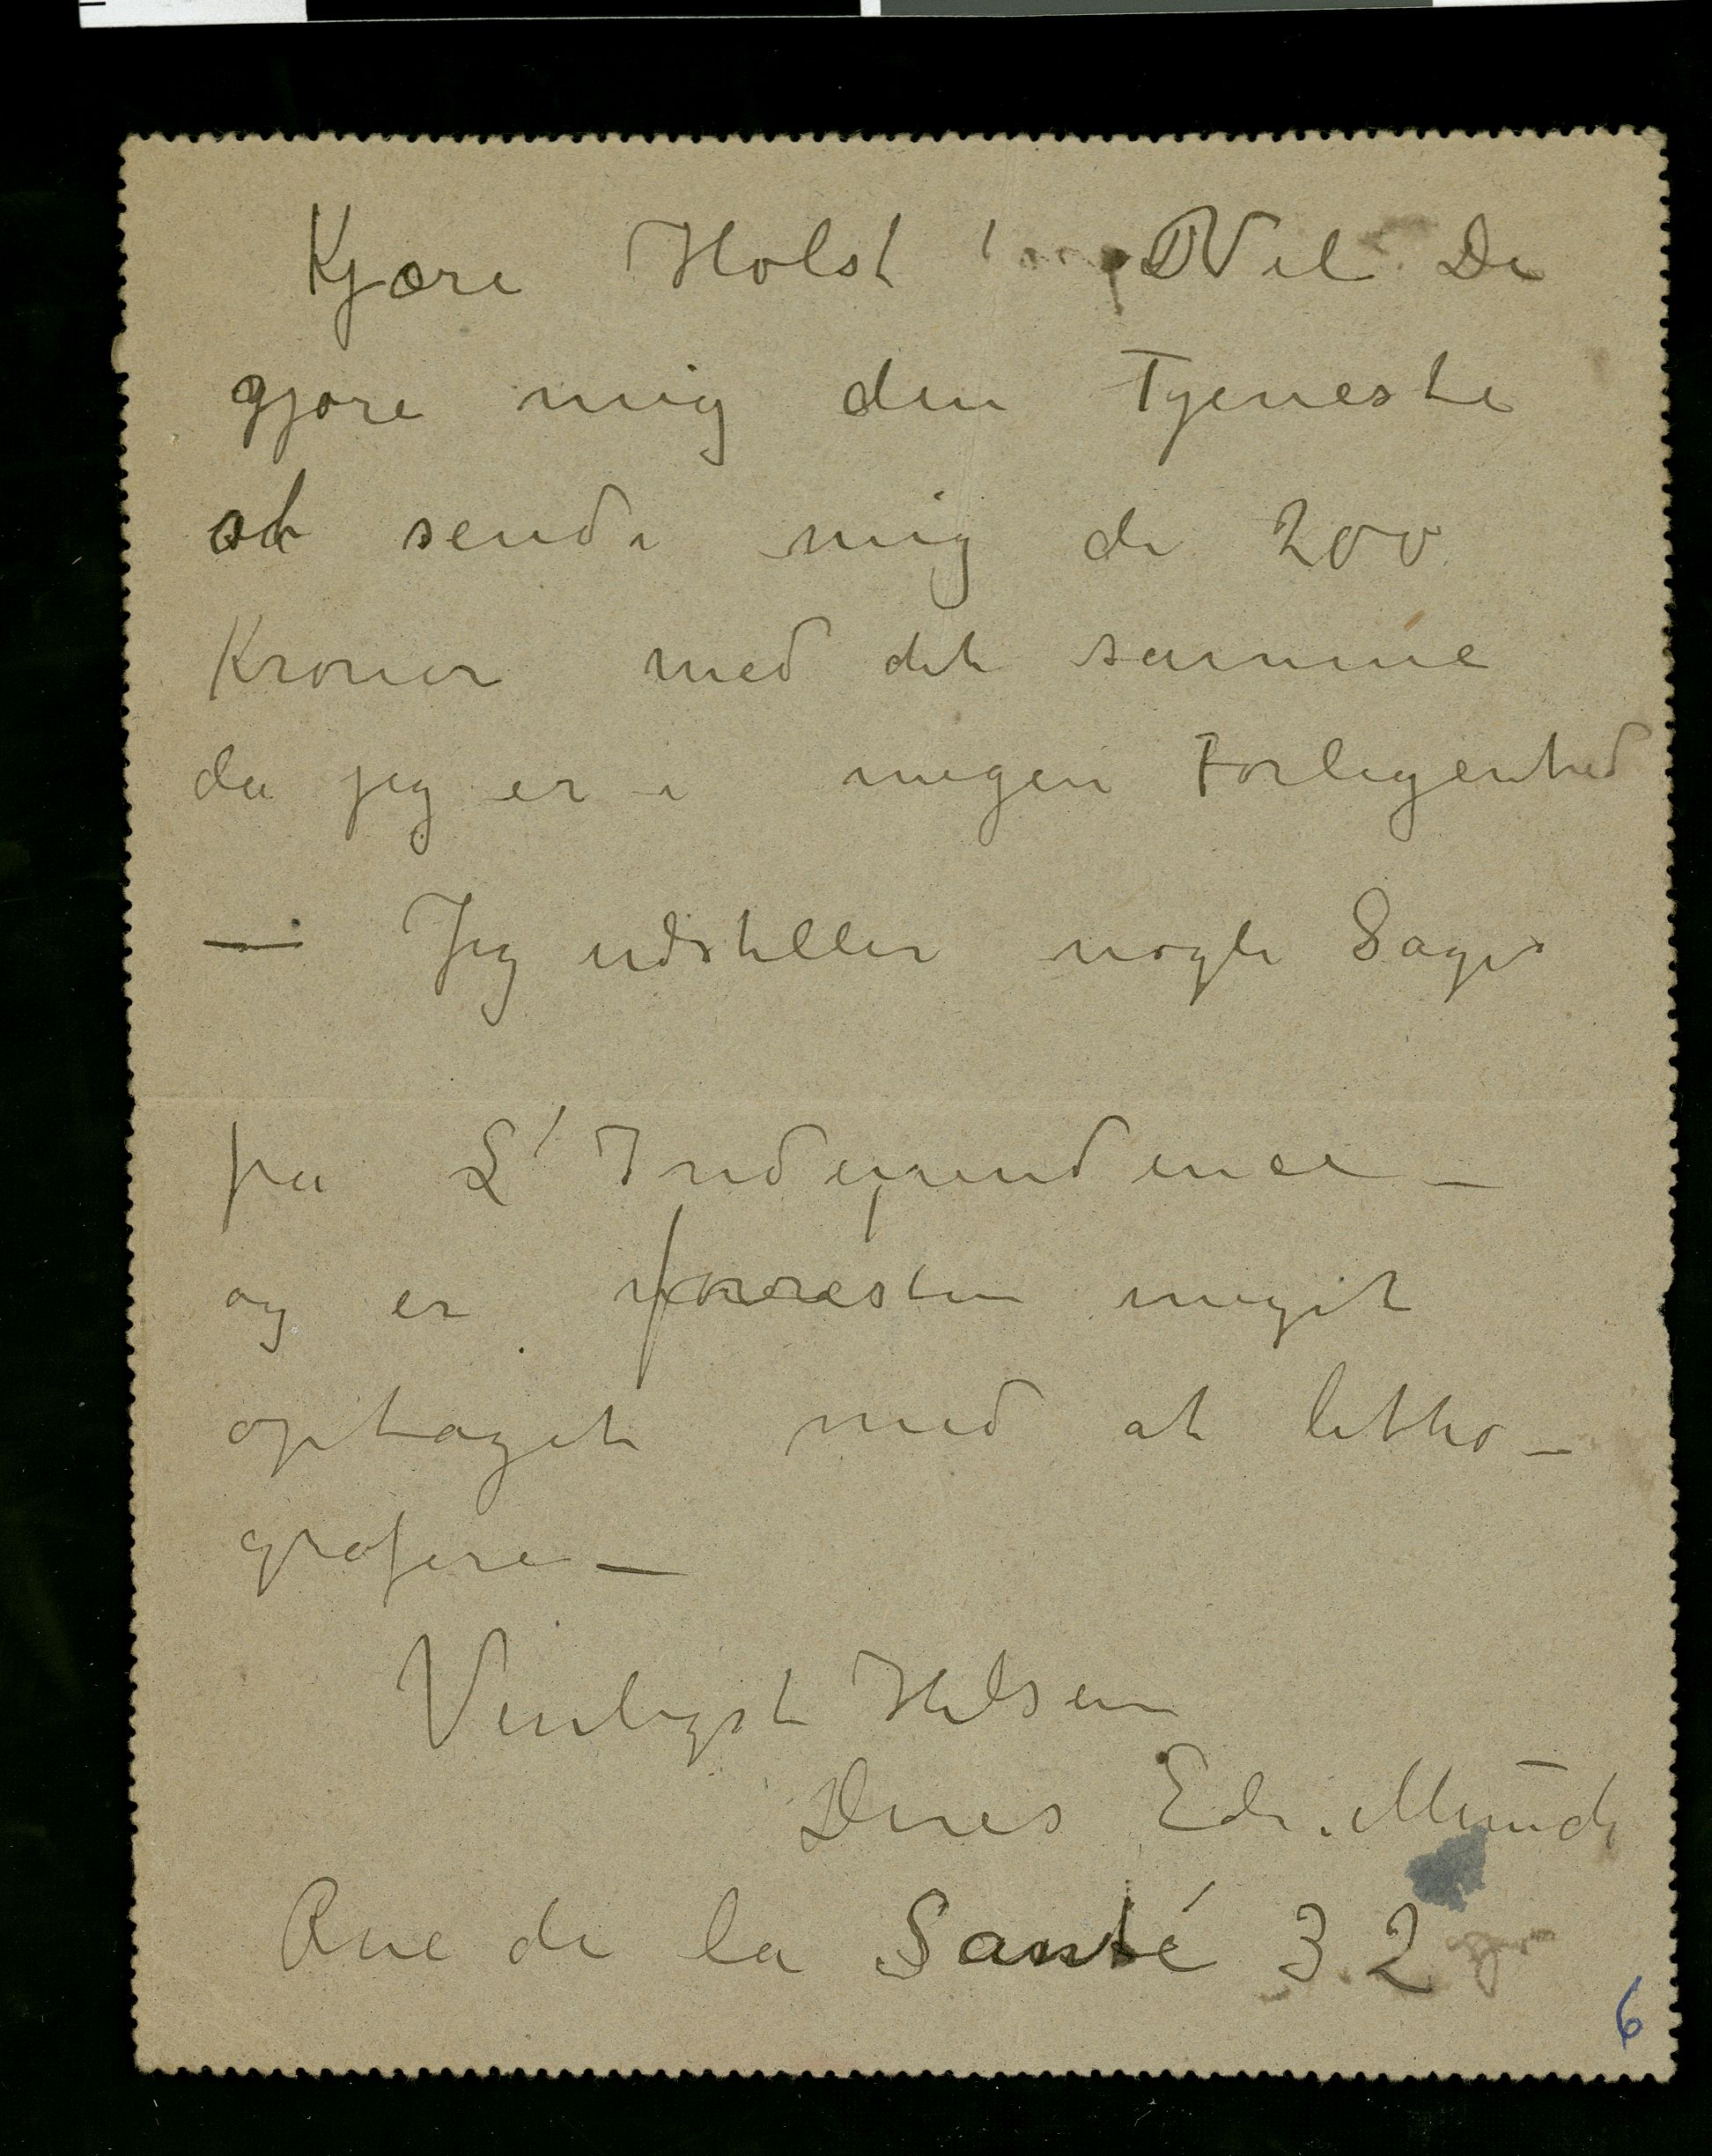 Kjære Holst! Vil De
gjøre mig den Tjeneste
at sende mig de 200
Kroner med det samme
da jeg er i megen Forlegenhed
— Jeg udstiller nogle Sager
på L'Independence –
og er forresten meget
optaget med at litho–
grafere —
Venligst Hilsen
Deres Edv. Munch
Rue de la Santé 32
6